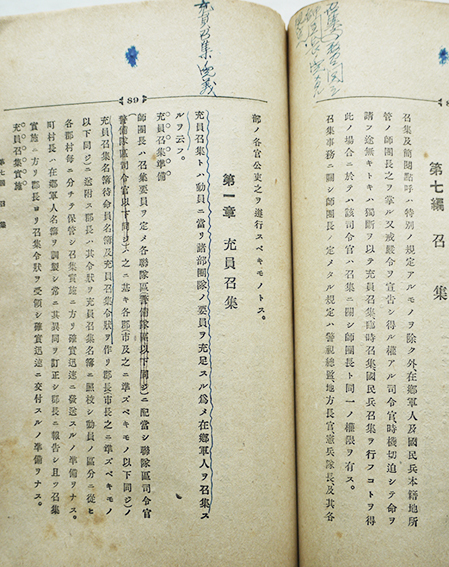 第七編 召集
召集及簡閲點呼ハ特別ノ規定アルモノヲ除ク外在鄕軍人及國民兵本籍地所
管ノ師團長之ヲ掌ル又戒嚴令ヲ宣告シ得ル權アル司令官時機切迫シテ命ヲ
請フ途無キトキハ獨斷ヲ以テ充員召集臨時召集國民兵召集ヲ行フコトヲ得
此ノ場合ニ於テハ該司令官ハ召集ニ關シ師團長ト同一ノ權限ヲ有ス。
召集事務ニ關シ師團長ノ定メタル規定ハ警視總監地方長官憲兵隊長及其各
充員召集
89
部ノ各官公吏之ヲ遵行スベキモノトス。
第一章 充員召集
充員召集トハ動員ニ當リ諸部團隊ノ要員ヲ充足スル爲メ在鄕軍人ヲ召集ス
ルヲ云フ。
充員召集準備
師團長ハ召集要員ヲ定メ各聯隊區(警備隊區以下同ジ)ニ配當シ聯隊區司令官
(警備隊區司令官以下同ジ)ハ之ニ基キ各郡市(及之ニ準ズベキモノ以下同ジ)ノ
充員召集名簿待命員名簿及充員召集令狀ヲ作リ郡長市長(之ニ準ズベキモノ
以下同ジ)ニ送附ス郡長ハ其令狀ヲ充員召集名簿ニ照校シ動員ノ區分ニ從ヒ
各町村每ニ分チテ保管シ召集實施ニ方リ確實迅速ニ發送スルノ準備ヲナス。
町村長ハ在鄕軍人名簿ヲ調製シ常ニ其異同ヲ訂正シ郡長ニ報告シ且ツ召集
實施ニ方リ郡長ヨリ召集令狀ヲ受領シ確實迅速ニ交付スルノ準備ヲナス。
充員召集實施
第七編 召集